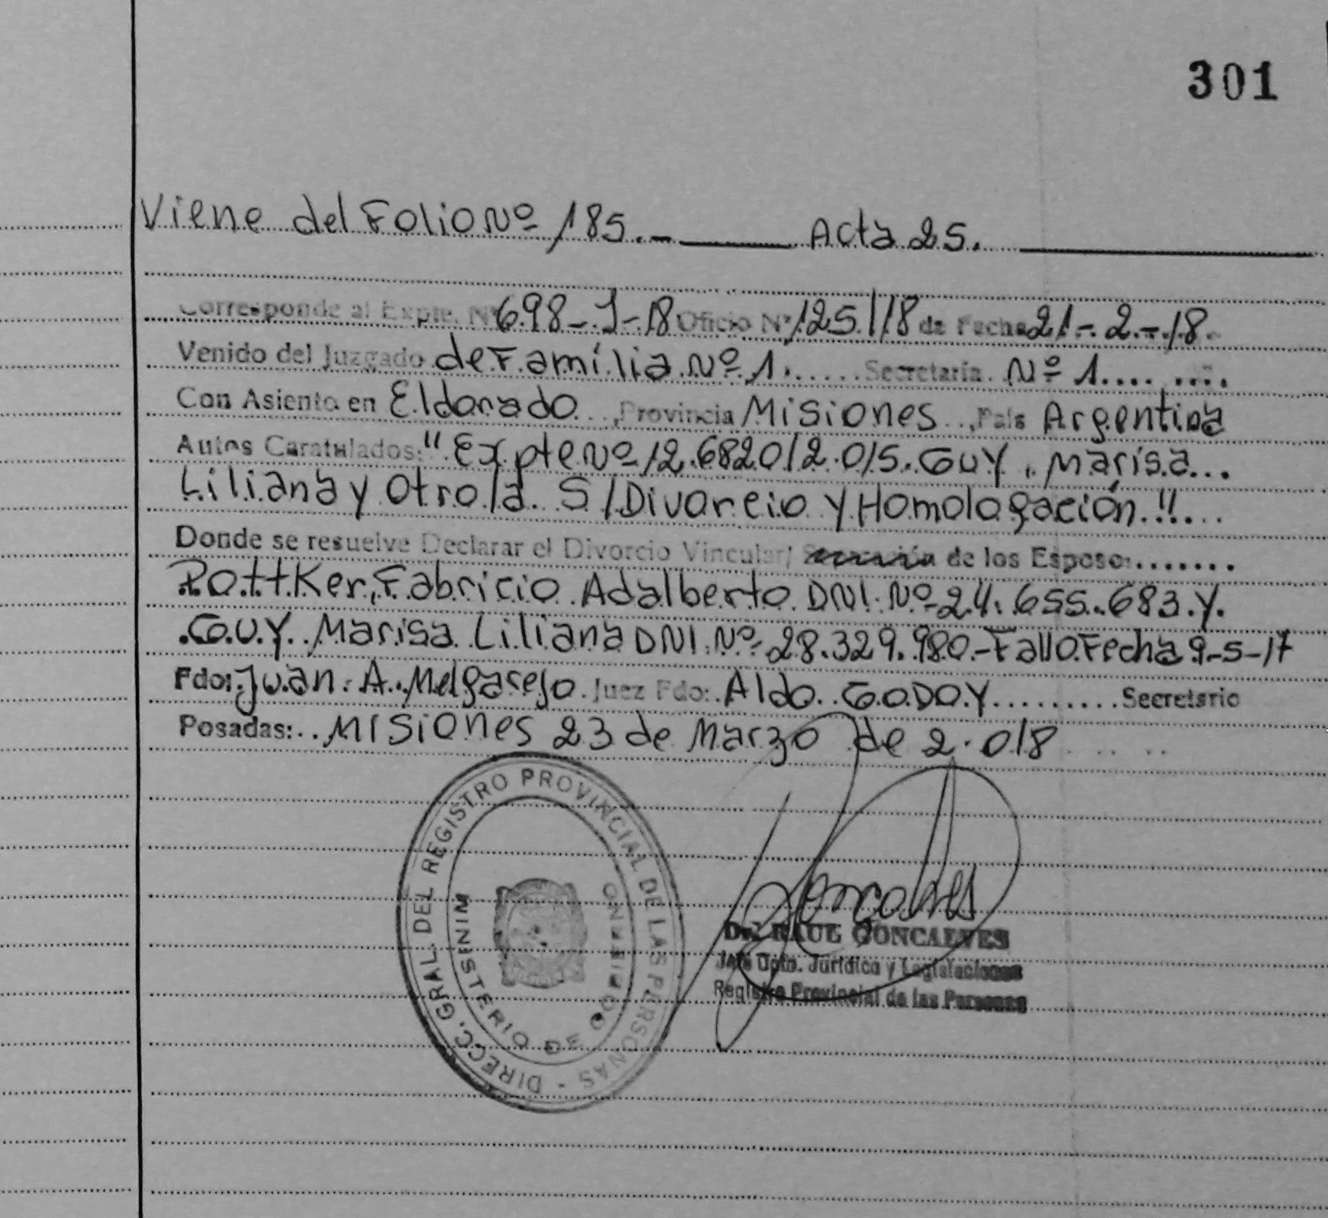 301
Viene del Folio Nº 185.- Acta 25.
Corresponde al Expte. Nº 698-J-18 Oficio Nº 125/18 de Fecha 21-2-18.
Venido del Juzgado de Familia Nº 1. Secretaría Nº 1.
Con Asiento en Eldorado, Provincia Misiones, País Argentina
Autos Caratulados: "Expte Nº 12.6820/2.015. GUY, Marisa
Liliana y Otro/a S/Divorcio y Homologación."
Donde se resuelve Declarar el Divorcio Vincular/ de los Esposo:
Rottker, Fabricio Adalberto DNI. Nº 24.655.683.y.
G.U.Y. Marisa Liliana DNI. Nº 28.329.980.- Fallo Fecha 9-5-17
Fdo: Juan. A. Melgarejo. Juez Fdo: Aldo GODOY Secretario
Posadas: Misiones 23 de Marzo de 2.018
DIRECC. GRAL. DEL REGISTRO PROVINCIAL DE LAS PERSONAS -
MINISTERIO DE GOBIERNO
Goncalves
Dr. RAUL GONCALVES
Jefe Dpto. Jurídico y Legislaciones
Registro Provincial de las Personas